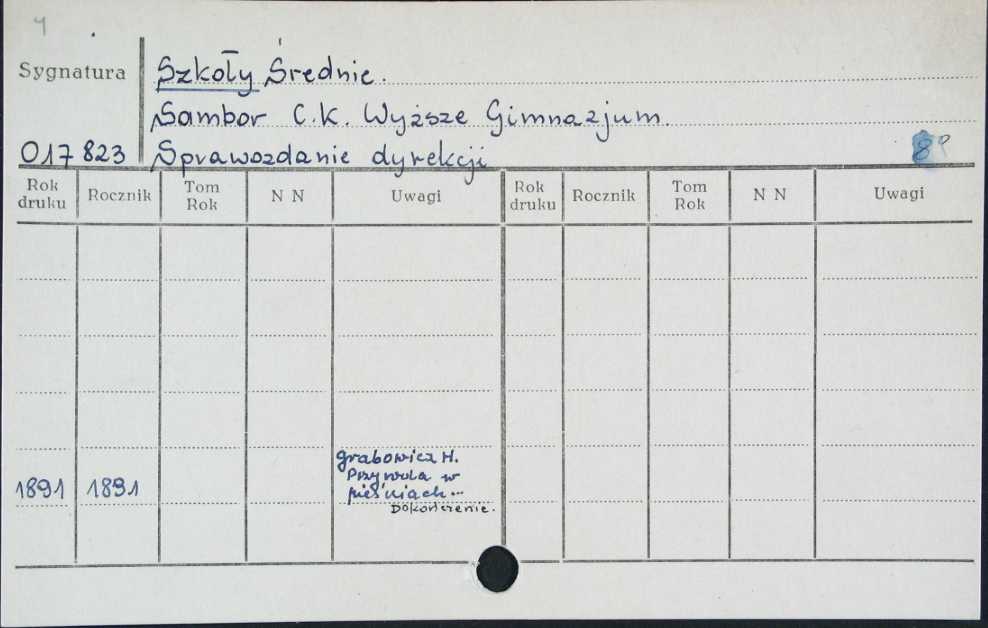 4
Sygnatura Szkoły Średnie.
Sambor C.K. Wyższe Gimnazjum
017823 Sprawozdanie dyrekcji 8º
Rok druku Rocznik Tom Rok N N Uwagi Rok druku Rocznik Tom Rok N N Uwagi
Grabowicz H.
Przyroda w
1891 1891 pieśniach...
Dokończenie.